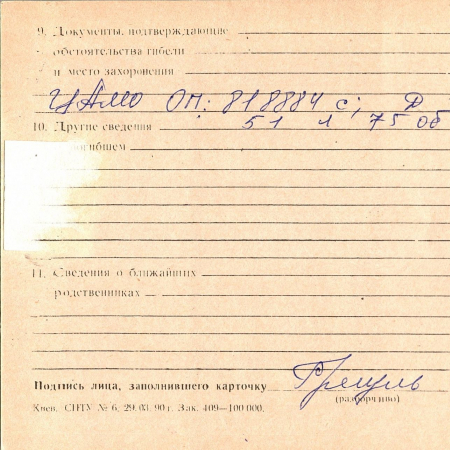 9. Документы, подтверждающие
обстоятельства гибели
и место захоронения
ЦАМО оп: 818884 с; Д
10. Другие сведения 51 л 75 об
погибшем
11. Сведения о ближайших
родственниках
Подпись лица, заполнившего карточку
(разборчиво)
Киев. СПТУ № 6. 29. 03. 90 г. Зак. 409—100 000.